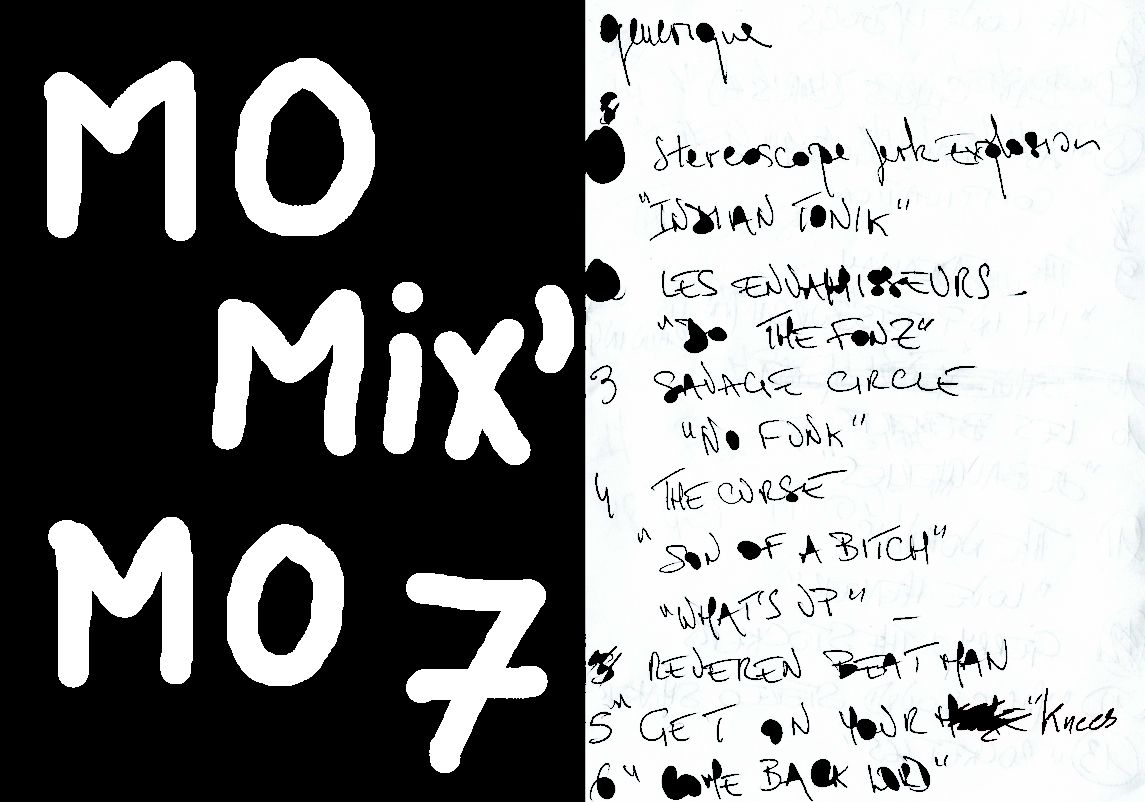 MO
Mix'
MO 7
générique
Stereoscope Jerk Explosion
"INDIAN TONIK"
LES ENVAHISSEURS -
"DO THE FONZ"
3 SAVAGE CIRCLE
"NO FUNK"
4 THE CURSE
"SON OF A BITCH"
"WHAT'S UP" -
REVEREN BEAT MAN
5 "GET ON YOUR Knees"
6 "COME BACK LORD"